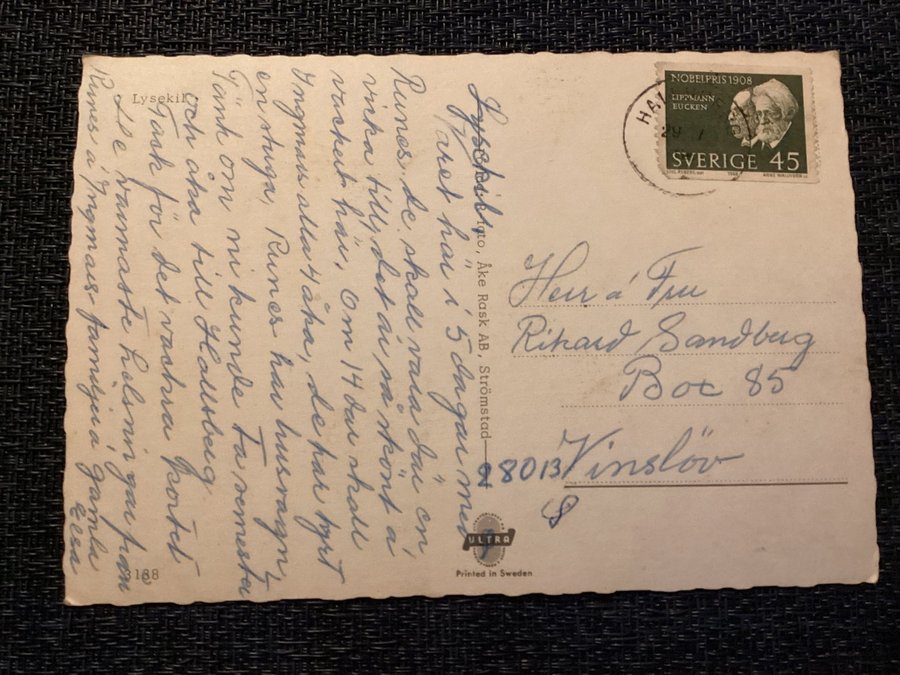 Lysekil
Lysekil.
Varit här i 5 dagar med
Runes, de skall vara där en
vecka till, det är så skönt å
vackert här. Om 14 dar skall
Yngmars alla 4 åka, de har hyrt
en stuga. Runes har husvagn.
Tänk om ni kunde ta semester
och åka till Hallsberg.
Tack för det vackra kortet
De varmaste hälsningar från
Runes å Yngmars familjer å gamla
Elsa
3188
Foto, Åke Rask AB, Strömstad
NOBELPRIS 1908
LIPPMANN
EUCKEN
SVERIGE 45
HAL
29 7
Herr å Fru
Rikard Sandberg
Box 85
28013 Vinslöv
S
ULTRA
Printed in Sweden